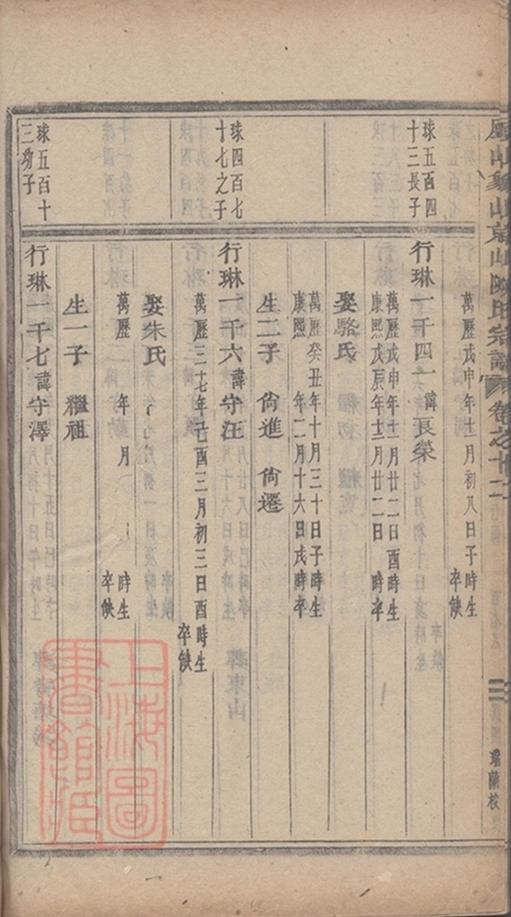 山象山京山陳氏宗譜 卷之十二
瑞蘭校
萬曆戊申年十一月初八日子時生
卒缺
球五百四
十三長子
行琳一千四一諱良榮
萬曆戊申年十一月廿二日酉時生
康熙戊辰年十二月廿二日 時卒
娶駱氏
萬曆癸丑年十月三十日子時生
康熙 年二月十六日戌時卒
生二子 尚進 尚遷
球四百七
十七之子
行琳一千六諱守汪
萬曆三十七年己酉三月初三日酉時生
卒缺
娶朱氏
萬曆 年 月 時生
卒缺
生一子 繼祖
球五百十
三幼子
行琳一千七諱守澤
上海圖
書館藏